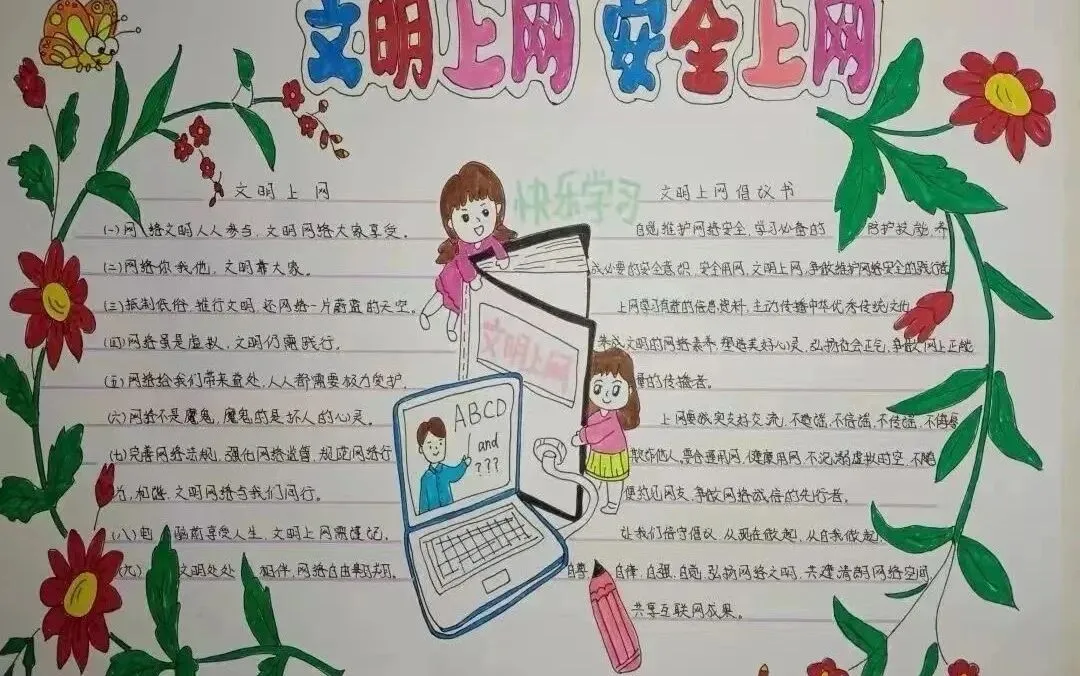 文明上网 安全上网
文明上网
(一)网络文明人人参与,文明网络大家享受。
(二)网络你我他,文明靠大家。
(三)抵制低俗,推行文明,还网络一片蔚蓝的天空。
(四)网络虽是虚拟,文明仍需践行。
(五)网络给我们带来益处,人人都需要极力爱护。
(六)网络不是魔鬼,魔鬼的是坏人的心灵。
(七)完善网络法规,强化网络监督,规范网络行
为,和谐,文明网络与我们同行。
(八)电脑前享受人生,文明上网需谨记。
(九)文明处处相伴,网络自由
快乐学习
文明上网
ABCD
and
???
文明上网倡议书
自觉维护网络安全,学习必备的防护技能,养
成必要的安全意识,安全用网,文明上网,争做维护网络安全的践行者
上网学习有益的信息资料,主动传播中华优秀传统文化
养成文明的网络素养,塑造美好心灵,弘扬社会正气,争做网上正能
量的传播者。
上网要诚实友好交流,不造谣,不信谣,不传谣,不侮辱
欺诈他人。要合理用网,健康用网,不沉溺虚拟时空,不随
便约见网友,争做网络诚信的先行者。
让我们倍守倡议,从现在做起,从自我做起,
自尊,自律,自强,自觉,弘扬网络文明,共建清朗网络空间,
共享互联网成果。